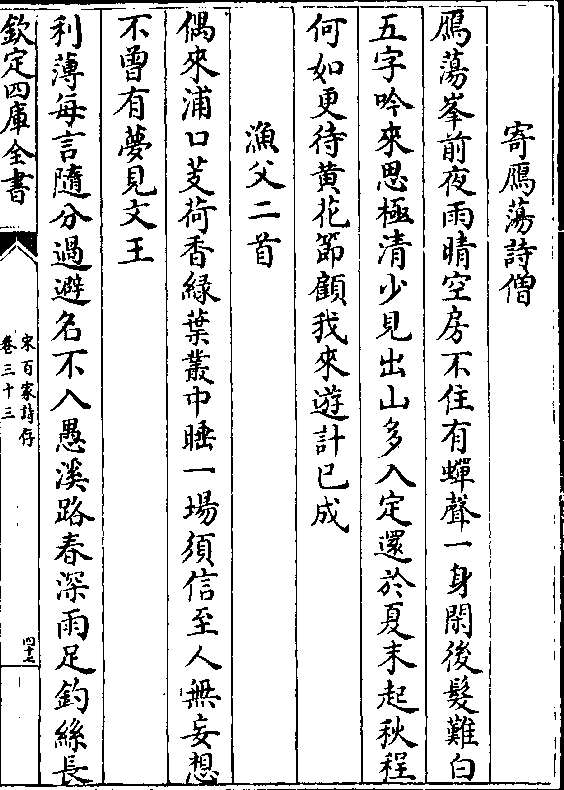 寄鴈蕩詩僧
鴈蕩峯前夜雨晴空房不住有蟬聲一身閑後髮難白
五字吟來思極清少見出山多入定還於夏末起秋程
何如更待黄花節顧我來遊計已成
漁父二首
偶來浦口芰荷香緑葉叢中睡一場須信至人無妄想
不曾有夢見文王
利薄每言隨分過避名不入愚溪路春深雨足釣絲長
欽定四庫全書
宋百家詩存
卷三十三